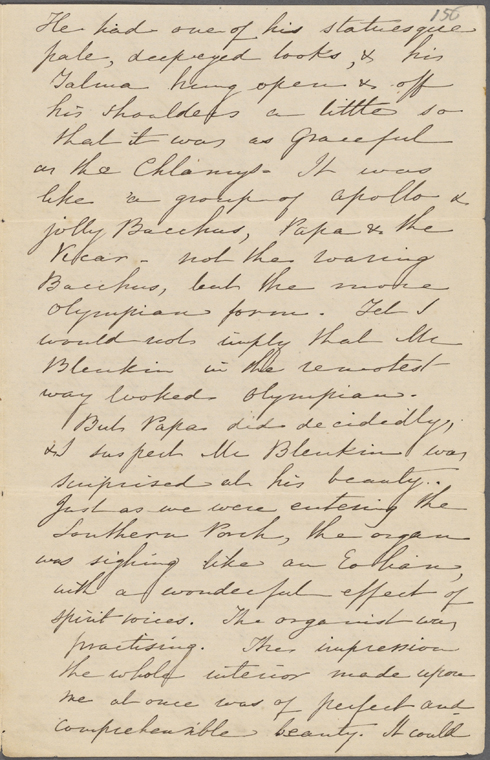 150
He had one of his statuesque
pale, deepeyed looks, & his
Talma hung open & off
his shoulders a little so
that it was as graceful
as the Chlamys- It was
like a group of Apollo &
jolly Bacchus, Papa & the
Vicar - not the roaring
Bacchus, but the more
Olympian form. Yet I
would not imply that Mr
Blenkin in the remotest
way looked Olympian.
But Papa did decidedly;
& I suspect Mr Blenkin was
surprised at his beauty..
Just as we were entering the
Southern Porch, the organ
was sighing like an Eolian,
with a wonderful effect of
spirit voices. The organist was
practising. The impression
the whole interior made upon
me at once was of perfect and
comprehensible beauty. It could